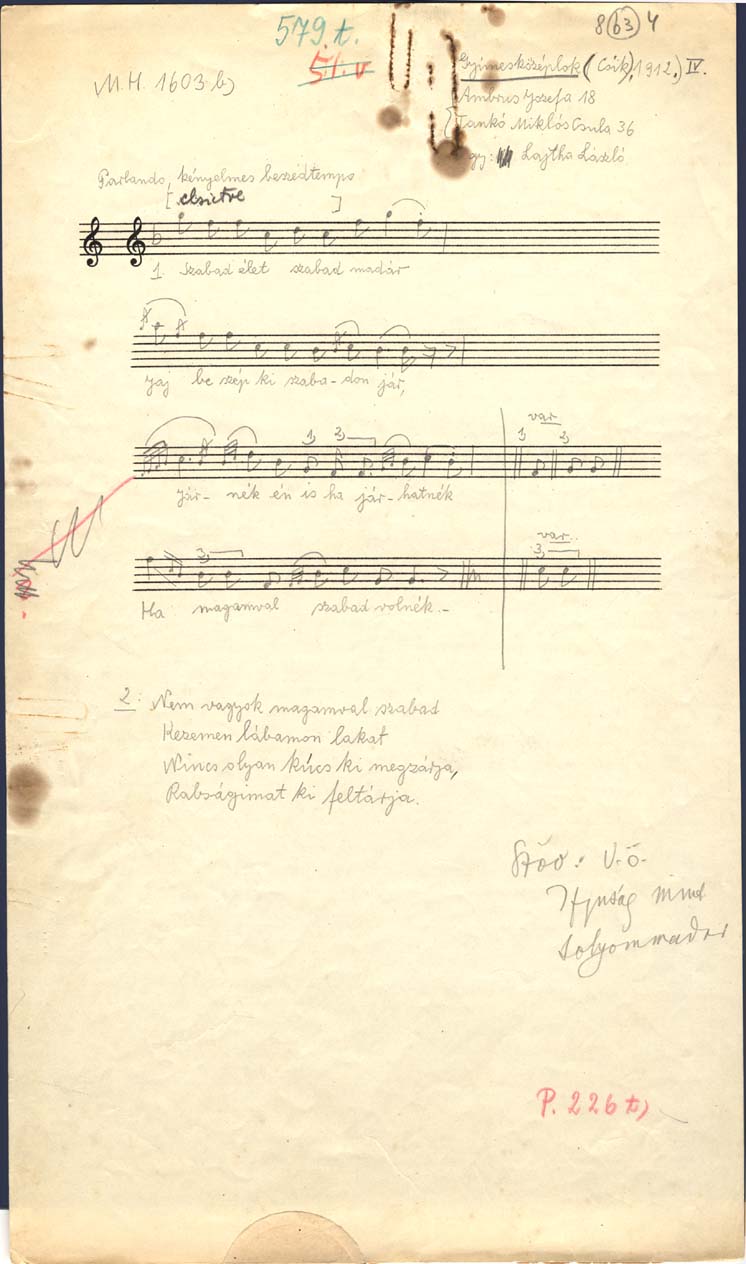 579.t.
51.v
8 (63) 4
M.H. 1603.b)
Gyimesközéplok (Csik), 1912.) IV.
Ambrus Jozefa 18
Tankó Miklós Csula 36
gy: Lajtha László
Parlando, kényelmes beszédtempo
[ elsietve ]
1. Szabad élet szabad madár
Jaj be szép ki szaba-don jár,
var
1) 2) 1) 2)
Jár- nék én is ha jár-hatnék
var.
3) 3)
Ha magamval szabad volnék.-
2. Nem vagyok magamval szabad
Kezemen lábamon lakat
Nincs olyan kúcs ki megzárja,
Rabságimat ki feltárja.
Szöv: V.ö.
Ifjuság mind
solyommadar
P. 226 t)